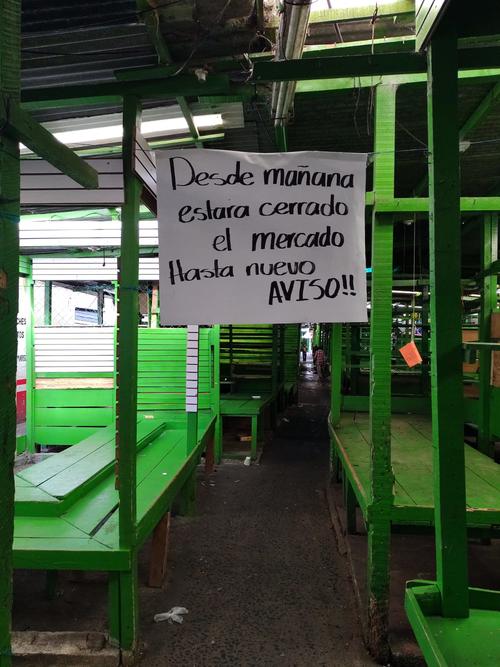 Desde mañana
estara cerrado
el mercado
Hasta nuevo
AVISO!!